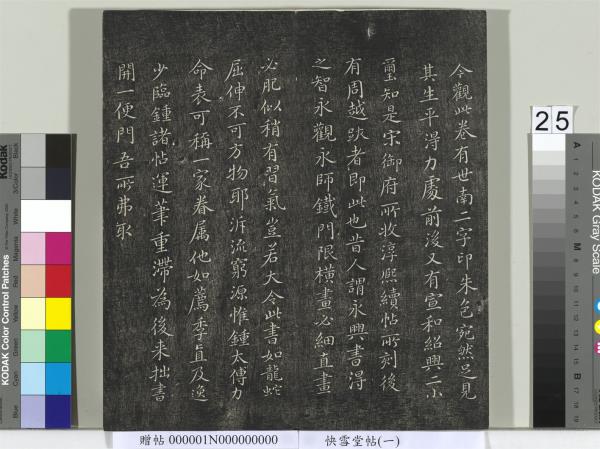 今觀此卷有世南二字印朱色宛然足見
其生平得力處前後又有宣和紹興二小
璽知是宋御府所收淳熙續帖所刻後
有周越跋者即此也昔人謂永興書得
之智永觀永師鐵門限橫畫必細直畫
必肥似稍有習氣豈若大令此書如龍蛇
屈伸不可方物耶泝流窮源惟鍾太傅力
命表可稱一家眷屬他如薦季直及逸
少臨鍾諸帖運筆重滯為後來拙書
開一便門吾所弗取
25
贈帖 000001N000000000
快雪堂帖(一)
KODAK Color Control Patches
KODAK Gray Scale
Kodak
Black
3/Color
White
Magenta
Red
Yellow
Green
Cyan
Blue
A
1
2
3
4
5
6
M
7
8
9
10
11
12
13
14
15
B
17
18
19